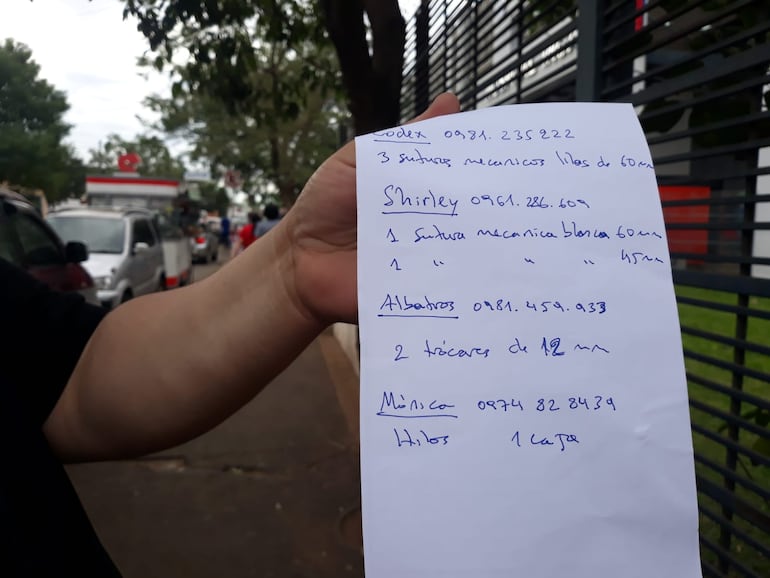 Codex 0981. 235222
3 suturas mecanicos lilas de 60mm
Shirley 0961. 286. 609
1 sutura mecanica blanca 60mm
1 " " " 45mm
Albatros 0981. 459. 933
2 trócares de 12 mm
Mónica 0974 82 8439
Hilos 1 caja